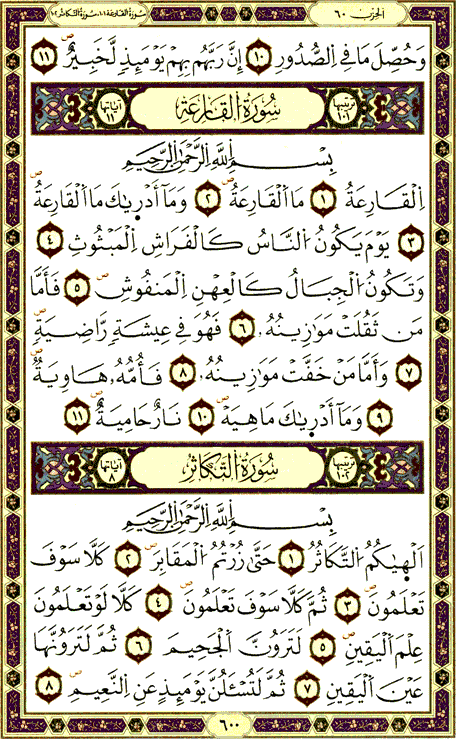 الحِزْب ٦٠ سُورَةُ القَارِعَة ١٠١ سُورَةُ التَّكَاثُر ١٠٢
وَحُصِّلَ مَا فِي الصُّدُورِ ١٠ إِنَّ رَبَّهُم بِهِمْ يَوْمَئِذٍ لَّخَبِيرٌ ١١
تَرتيبُهَا ١٠١ سُورَةُ القَارِعَةِ آيَاتُهَا ١١
بِسْمِ اللَّهِ الرَّحْمَٰنِ الرَّحِيمِ
اِلْقَارِعَةُ ١ مَا الْقَارِعَةُ ٢ وَمَا أَدْرِيٰكَ مَا الْقَارِعَةُ
٣ يَوْمَ يَكُونُ النَّاسُ كَالْفَرَاشِ الْمَبْثُوثِ ٤
وَتَكُونُ الْجِبَالُ كَالْعِهْنِ الْمَنفُوشِ ٥ فَأَمَّا
مَن ثَقُلَتْ مَوَٰزِينُهُ ٦ فَهُوَ فِي عِيشَةٍ رَّاضِيَةٍ
٧ وَأَمَّا مَنْ خَفَّتْ مَوَٰزِينُهُ ٨ فَأُمُّهُ هَاوِيَةٌ
٩ وَمَا أَدْرِيٰكَ مَا هِيَهْ ١٠ نَارٌ حَامِيَةٌ ١١
تَرتيبُهَا ١٠٢ سُورَةُ التَّكَاثُرِ آيَاتُهَا ٨
بِسْمِ اللَّهِ الرَّحْمَٰنِ الرَّحِيمِ
اَلْهِيٰكُمُ التَّكَاثُرُ ١ حَتَّىٰ زُرْتُمُ الْمَقَابِرَ ٢ كَلَّا سَوْفَ
تَعْلَمُونَ ٣ ثُمَّ كَلَّا سَوْفَ تَعْلَمُونَ ٤ كَلَّا لَوْ تَعْلَمُونَ
عِلْمَ الْيَقِينِ ٥ لَتَرَوُنَّ الْجَحِيمَ ٦ ثُمَّ لَتَرَوُنَّهَا
عَيْنَ الْيَقِينِ ٧ ثُمَّ لَتُسْـَٔلُنَّ يَوْمَئِذٍ عَنِ النَّعِيمِ ٨
٦٠٠